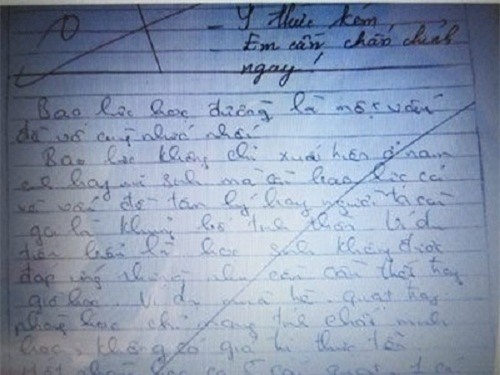 0
- Ý thức kém
- Em cần chấn chỉnh
ngay!
Bao lực học đường là một vấn
đề vô cùng nhức nhối
Bao lực không chỉ xuất hiện ở nam
sinh mà còn bạo lực cả
về vấn đề tâm lý hay người ta còn
gọi là khủng bố tinh thần. Ví dụ
là học sinh không được
đáp ứng những nhu cầu cần thiết hay
giờ học. Ví dụ mùa hè quạt
học chỉ mang tính chất minh
học, không có giá trị thực tiễn